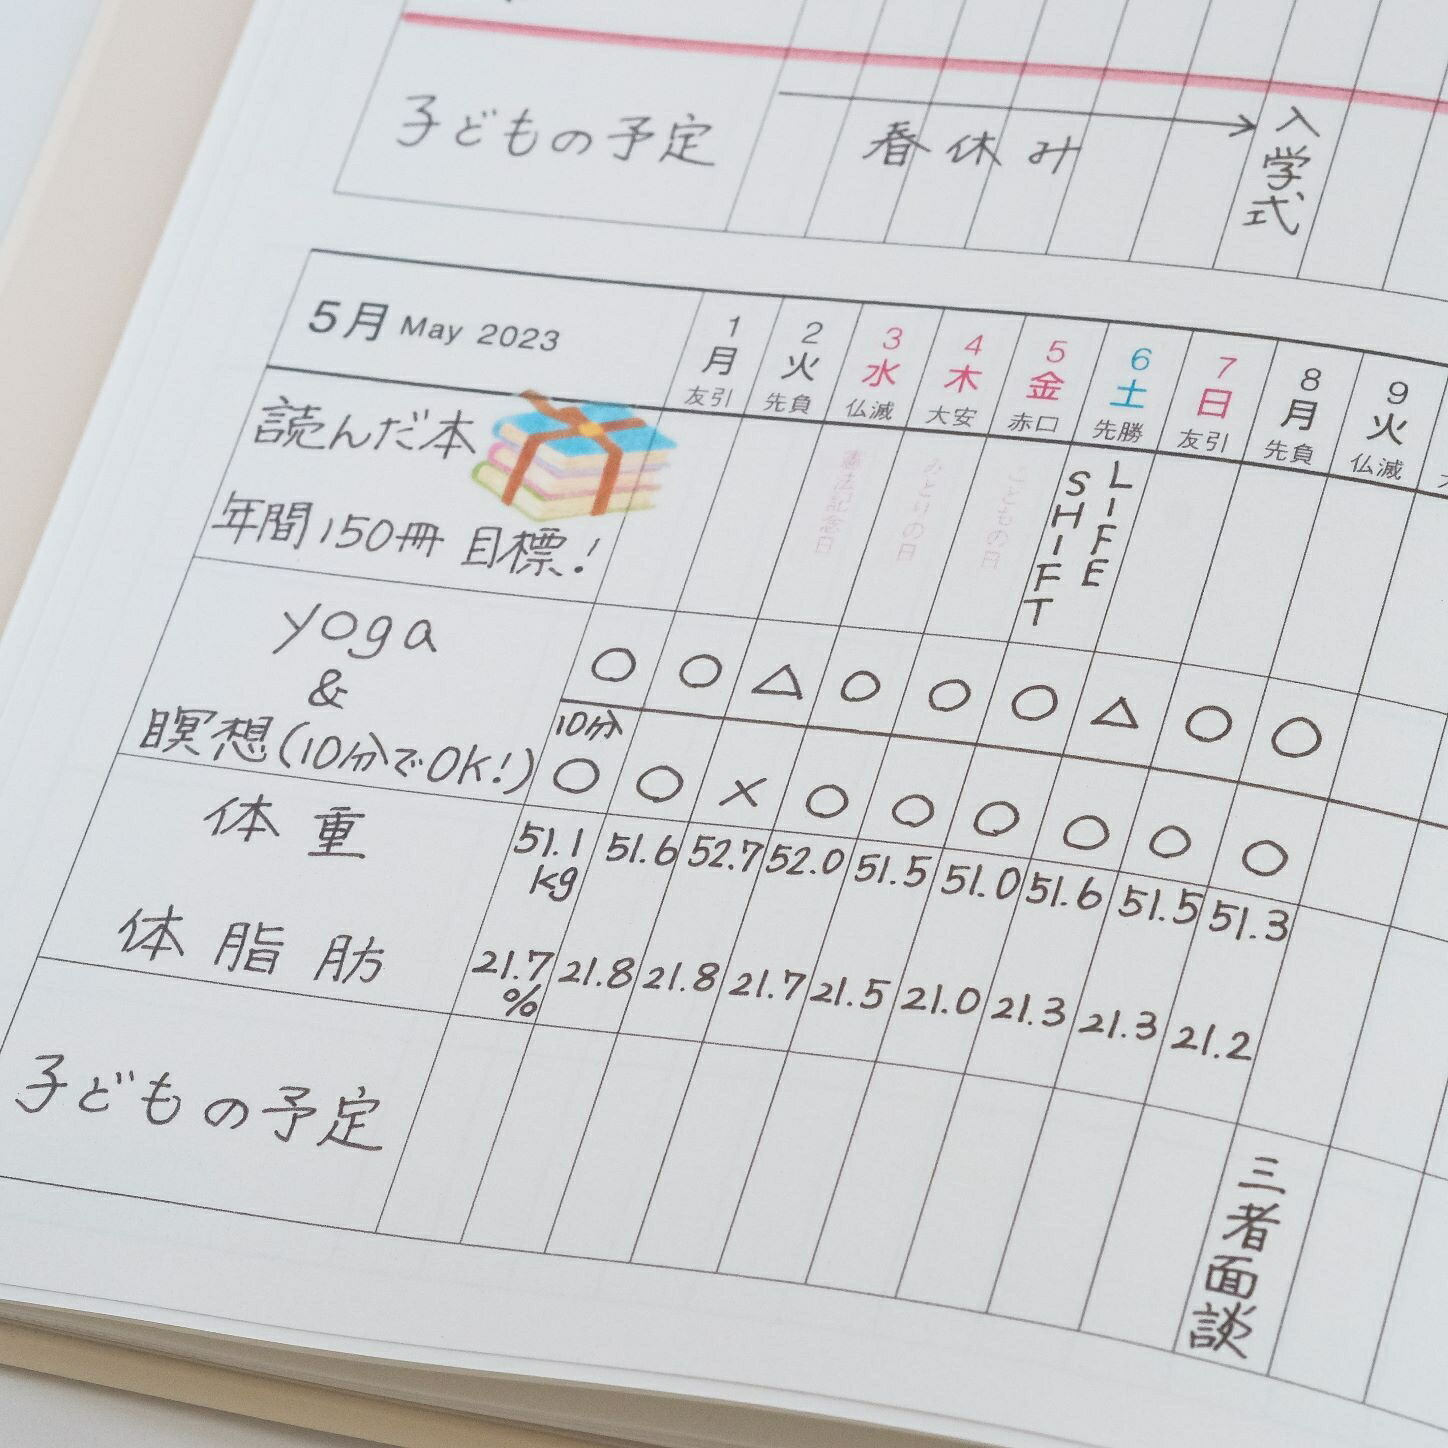 子どもの予定
春休み
入学式
5月 May 2023
1 2 3 4 5 6 7 8 9
月 火 水 木 金 土 日 月 火
友引 先負 仏滅 大安 赤口 先勝 友引 先負 仏滅
憲法記念日
みどりの日
こどもの日
読んだ本
年間150冊 目標!
LIFE
SHIFT
yoga
&
瞑想(10分でOK!)
○ ○ △ ○ ○ ○ △ ○ ○
10分
○ ○ × ○ ○ ○ ○ ○ ○
体重
51.1 51.6 52.7 52.0 51.5 51.0 51.6 51.5 51.3
kg
体脂肪
21.7 21.8 21.8 21.7 21.5 21.0 21.3 21.3 21.2
%
子どもの予定
三者面談